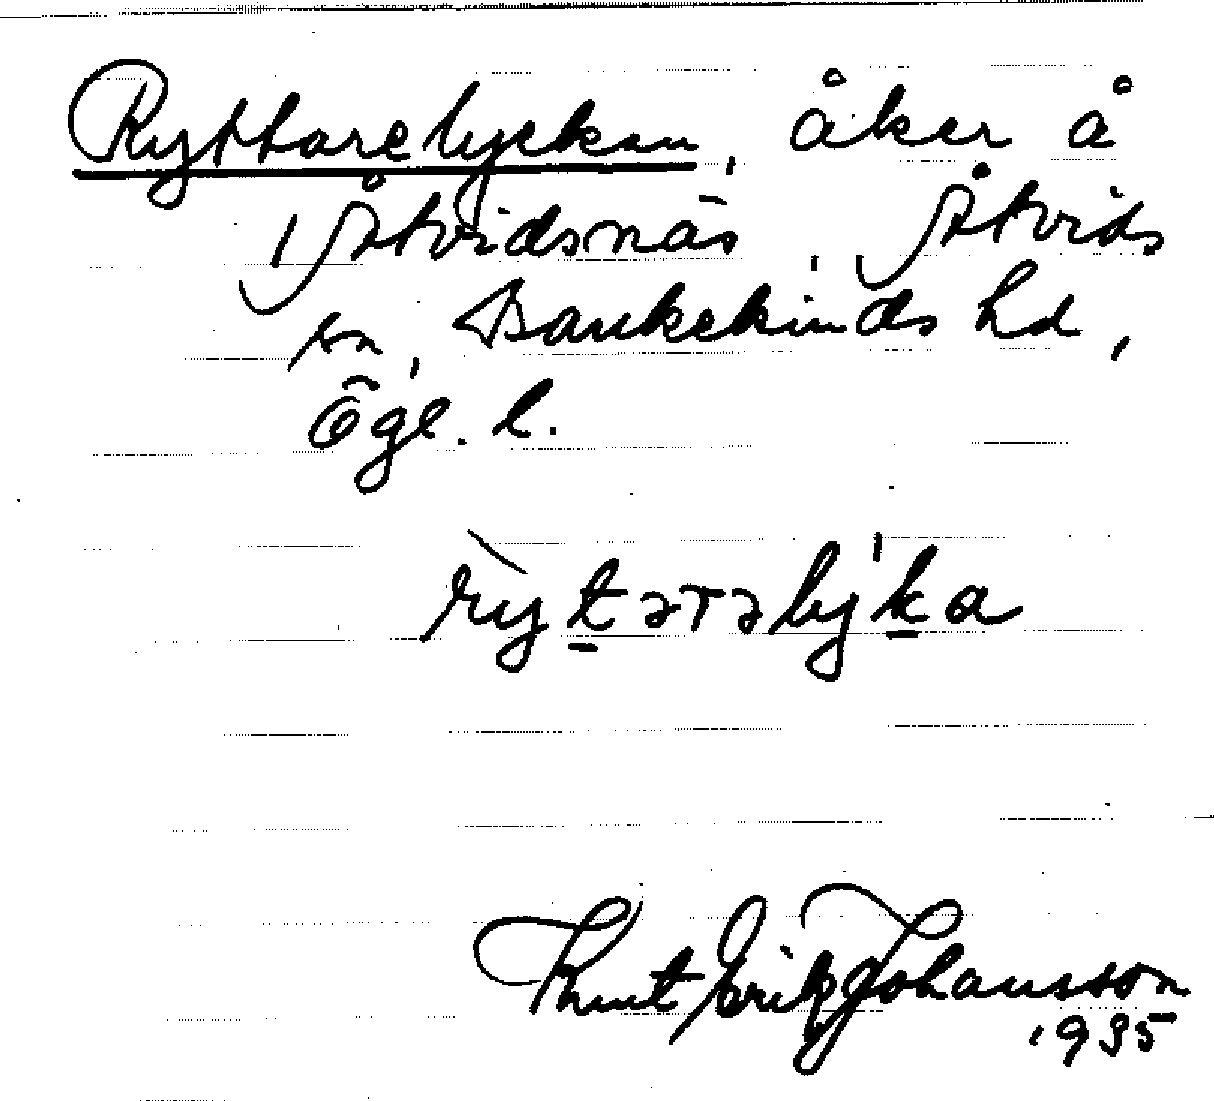 Ryttarelyckan, åker å
Åtvidsnäs, Åtvids
sn, Bankekinds hd,
Ögl. l.
rỳt̠ərəlýk̠a
Knut Erik Johansson
1935